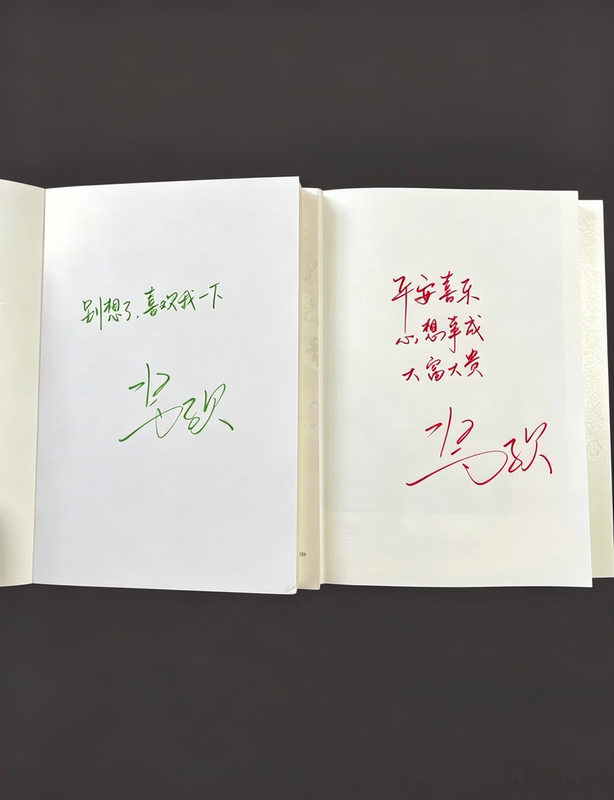 别想了，喜欢我一下
平安喜乐
心想事成
大富大贵